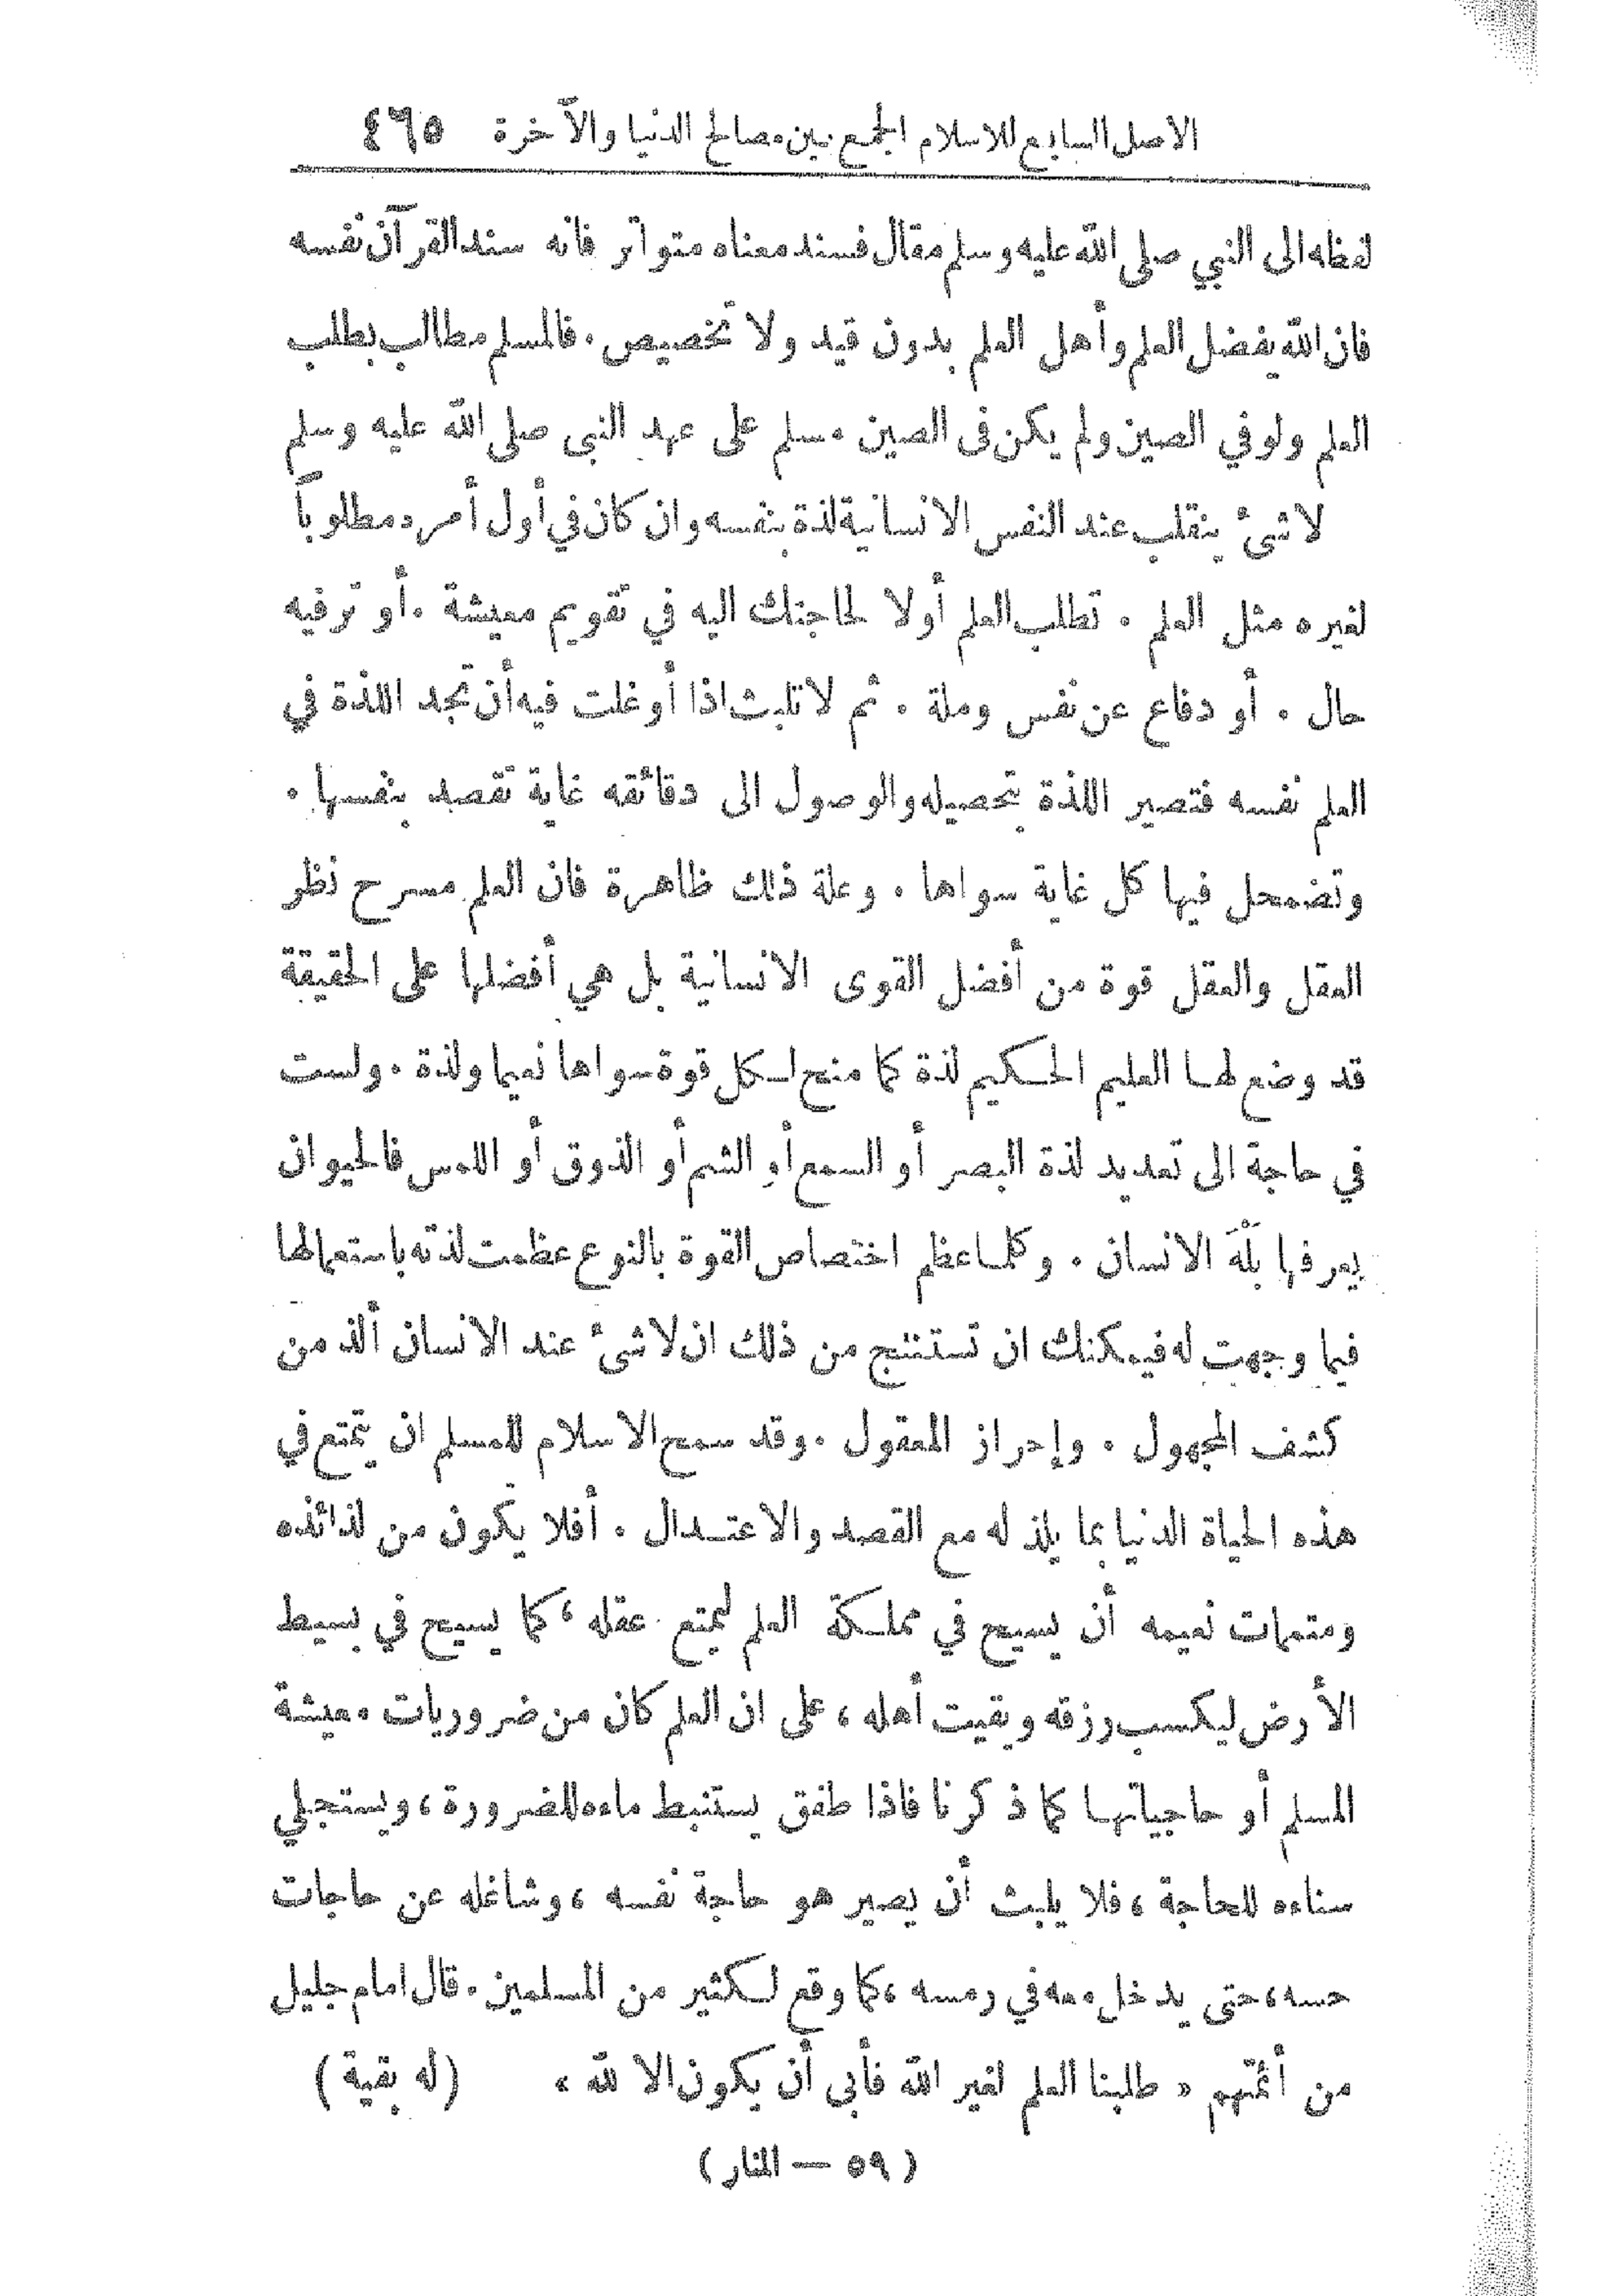 الاصل السابع للاسلام الجمع بين مصالح الدنيا والآخرة ٤٦٥
لفظه الى النبي صلى الله عليه وسلم مقال فسند معناه متواتر فانه سند القرآن نفسه
فان الله يفضل العلم وأهل العلم بدون قيد ولا تخصيص . فالمسلم مطالب بطلب
العلم ولو في الصين ولم يكن فى الصين مسلم على عهد النبى صلى الله عليه وسلم
لا شئ ينقلب عند النفس الانسانية لذة بنفسه وان كان في أول أمره مطلوباً
لغيره مثل العلم . تطلب العلم أولا لحاجتك اليه في تقويم معيشة . أو ترفيه
حال . أو دفاع عن نفس وملة . ثم لا تلبث اذا أوغلت فيه أن تجد اللذة في
العلم نفسه فتصير اللذة بتحصيله والوصول الى دقائقه غاية تقصد بنفسها .
وتضمحل فيها كل غاية سواها . وعلة ذلك ظاهرة فان العلم مسرح نظر
العقل والعقل قوة من أفضل القوى الانسانية بل هي أفضلها على الحقيقة
قد وضع لها العليم الحكيم لذة كما منح لكل قوة سواها نعيما ولذة . ولست
في حاجة الى تعديد لذة البصر أو السمع أو الشم أو الذوق أو اللمس فالحيوان
يعرفها بَلْهَ الانسان . وكلما عظم اختصاص القوة بالنوع عظمت لذته باستعمالها
فيما وجهت له فيمكنك ان تستنتج من ذلك ان لا شئ عند الانسان ألذ من
كشف المجهول . وإحراز المعقول . وقد سمح الاسلام للمسلم ان يتمتع في
هذه الحياة الدنيا بما يلذ له مع القصد والاعتدال . أفلا يكون من لذائذه
ومتممات نعيمه أن يسيح في مملكة العلم ليمتع عقله ، كما يسيح في بسيط
الأرض ليكسب رزقه ويقيت أهله ، على ان العلم كان من ضروريات معيشة
المسلم أو حاجياتها كما ذكرنا فاذا طفق يستنبط ماءه للضرورة ، ويستجلي
سناءه للحاجة ، فلا يلبث أن يصير هو حاجة نفسه ، وشاغله عن حاجات
حسه ، حتى يدخل معه في رمسه ، كما وقع لكثير من المسلمين . قال امام جليل
من أئمتهم « طلبنا العلم لغير الله فأبى أن يكون الا لله » (له بقية)
(٥٩ — المنار)